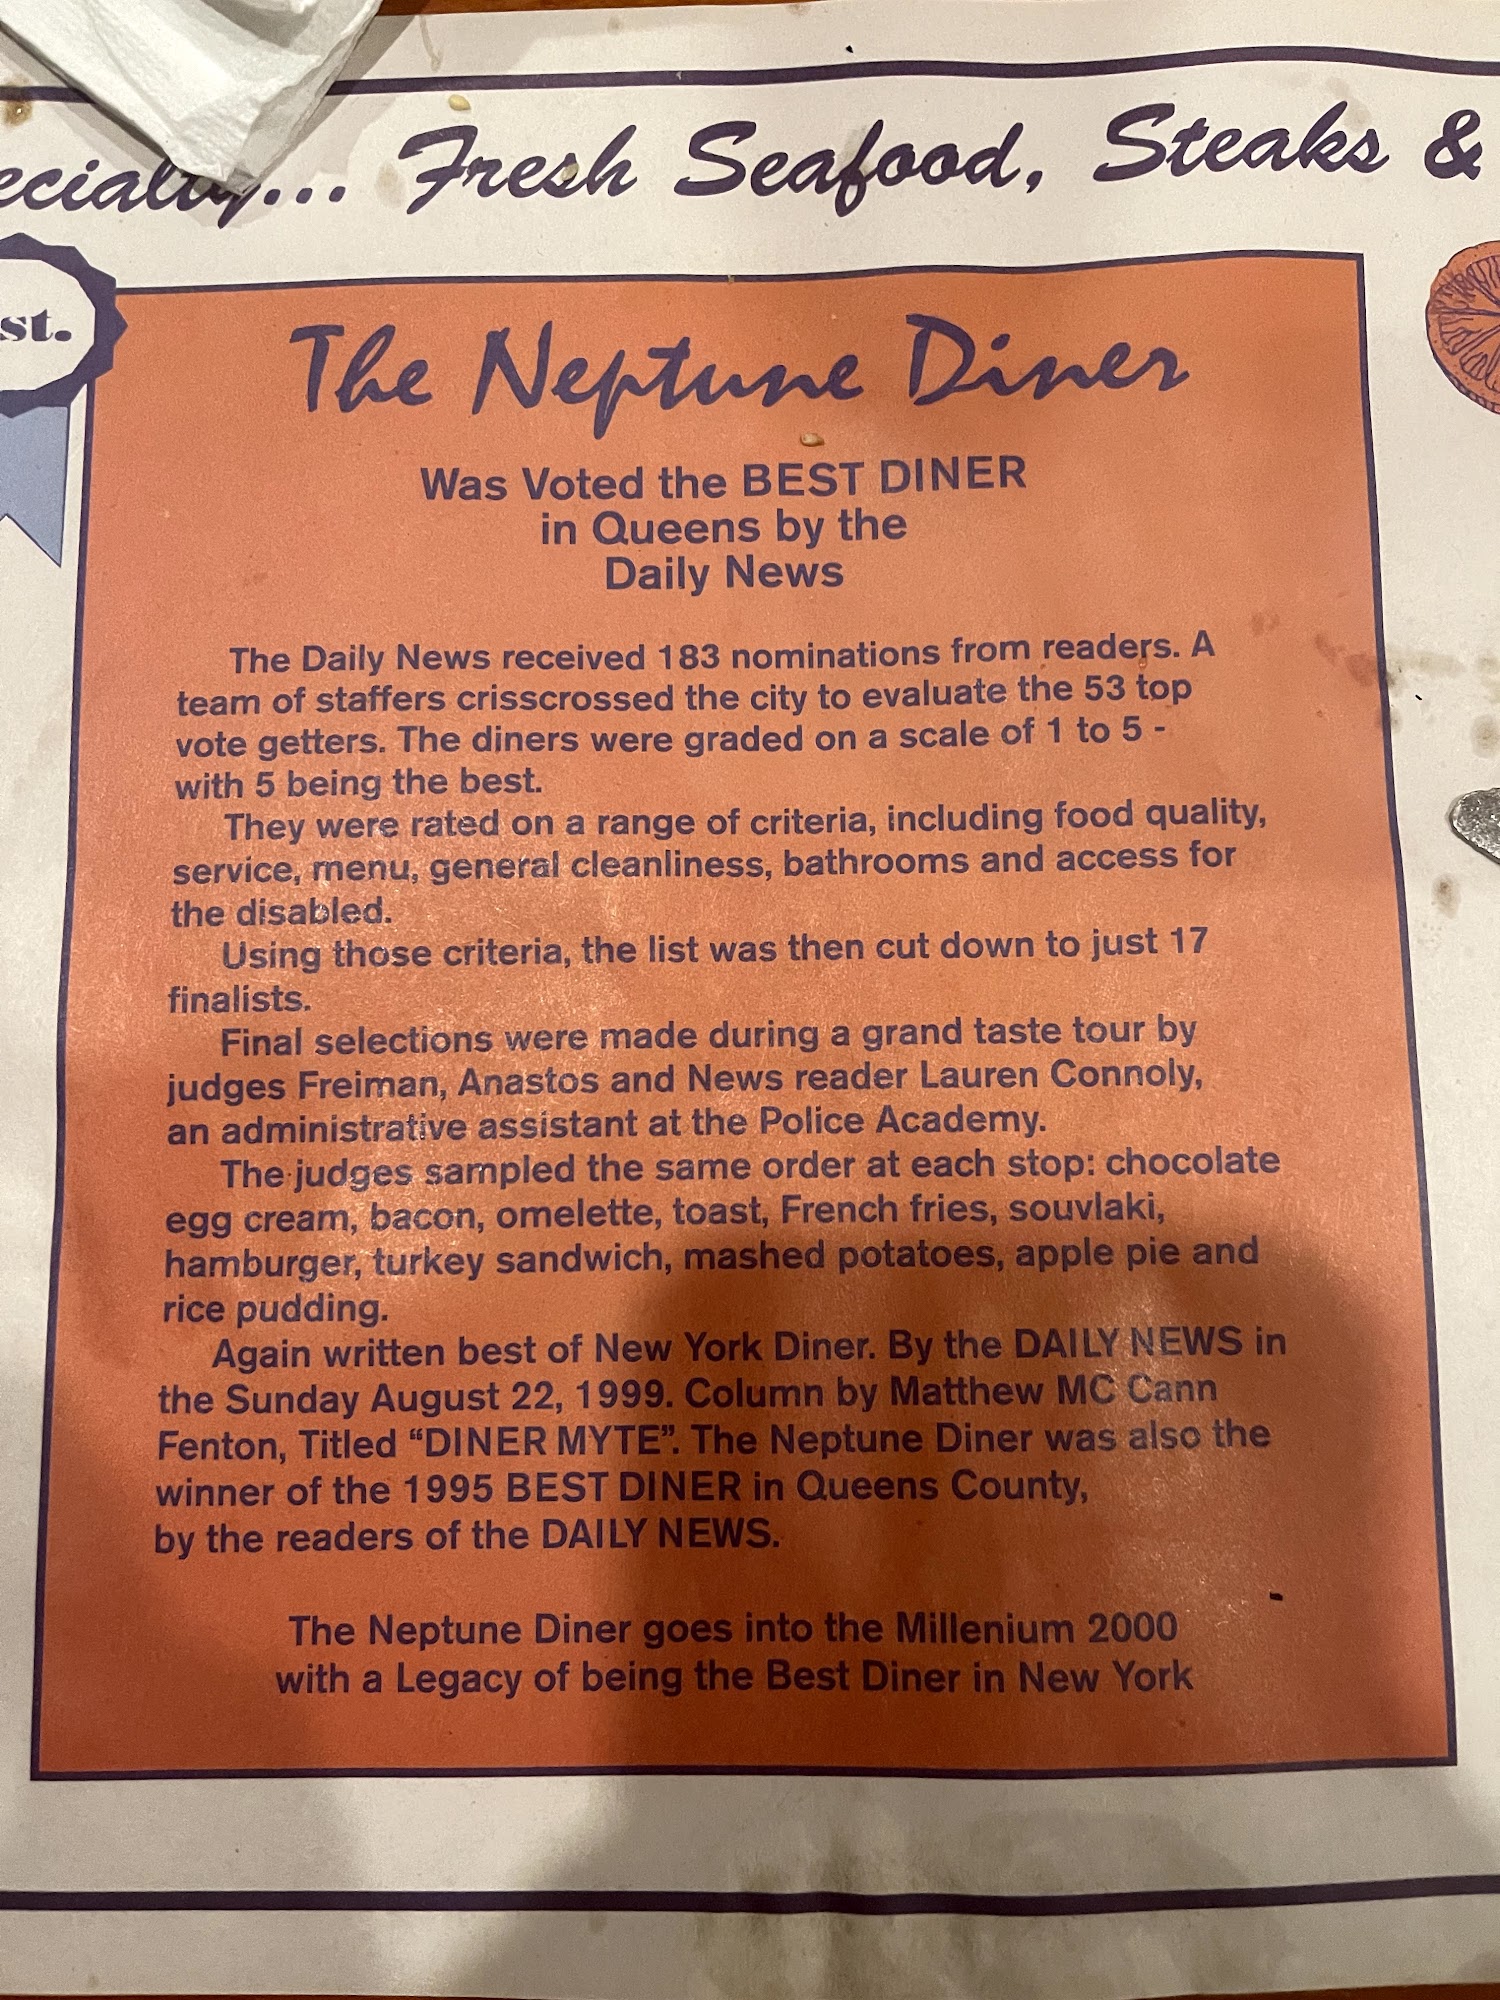 ... Fresh Seafood, Steaks &
st.
The Neptune Diner
Was Voted the BEST DINER
in Queens by the
Daily News
The Daily News received 183 nominations from readers. A
team of staffers crisscrossed the city to evaluate the 53 top
vote getters. The diners were graded on a scale of 1 to 5 -
with 5 being the best.
They were rated on a range of criteria, including food quality,
service, menu, general cleanliness, bathrooms and access for
the disabled.
Using those criteria, the list was then cut down to just 17
finalists.
Final selections were made during a grand taste tour by
judges Freiman, Anastos and News reader Lauren Connoly,
an administrative assistant at the Police Academy.
The judges sampled the same order at each stop: chocolate
egg cream, bacon, omelette, toast, French fries, souvlaki,
hamburger, turkey sandwich, mashed potatoes, apple pie and
rice pudding.
Again written best of New York Diner. By the DAILY NEWS in
the Sunday August 22, 1999. Column by Matthew MC Cann
Fenton, Titled “DINER MYTE”. The Neptune Diner was also the
winner of the 1995 BEST DINER in Queens County,
by the readers of the DAILY NEWS.
The Neptune Diner goes into the Millenium 2000
with a Legacy of being the Best Diner in New York